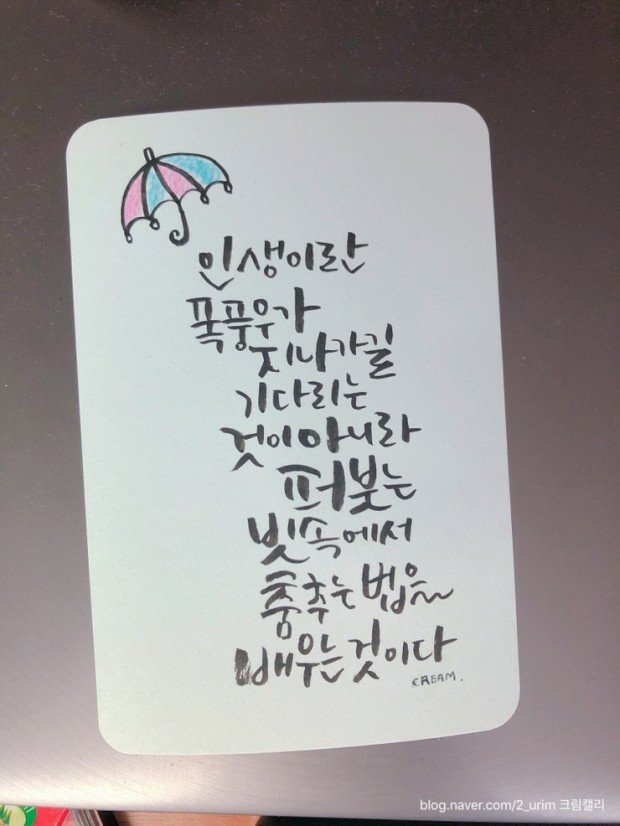 인생이란
폭풍우가
지나가길
기다리는
것이아니라
퍼붓는
빗속에서
춤추는 법을
배우는 것이다
CREAM.
blog.naver.com/2_urim 크림캘리